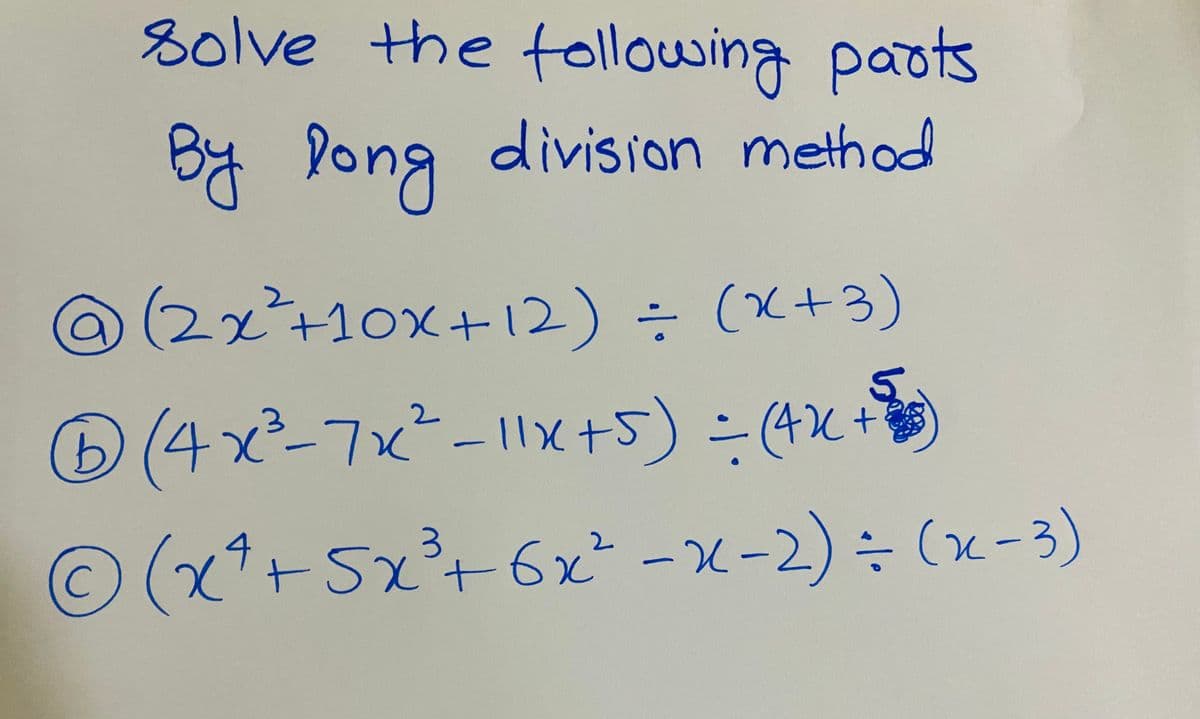 Solve the following parts
By long division method
ⓐ (2x²+10x+12) ÷ (x+3)
ⓑ (4x³-7x²-11x+5) ÷ (4x+5)
ⓒ (x⁴+5x³+6x²-x-2) ÷ (x-3)